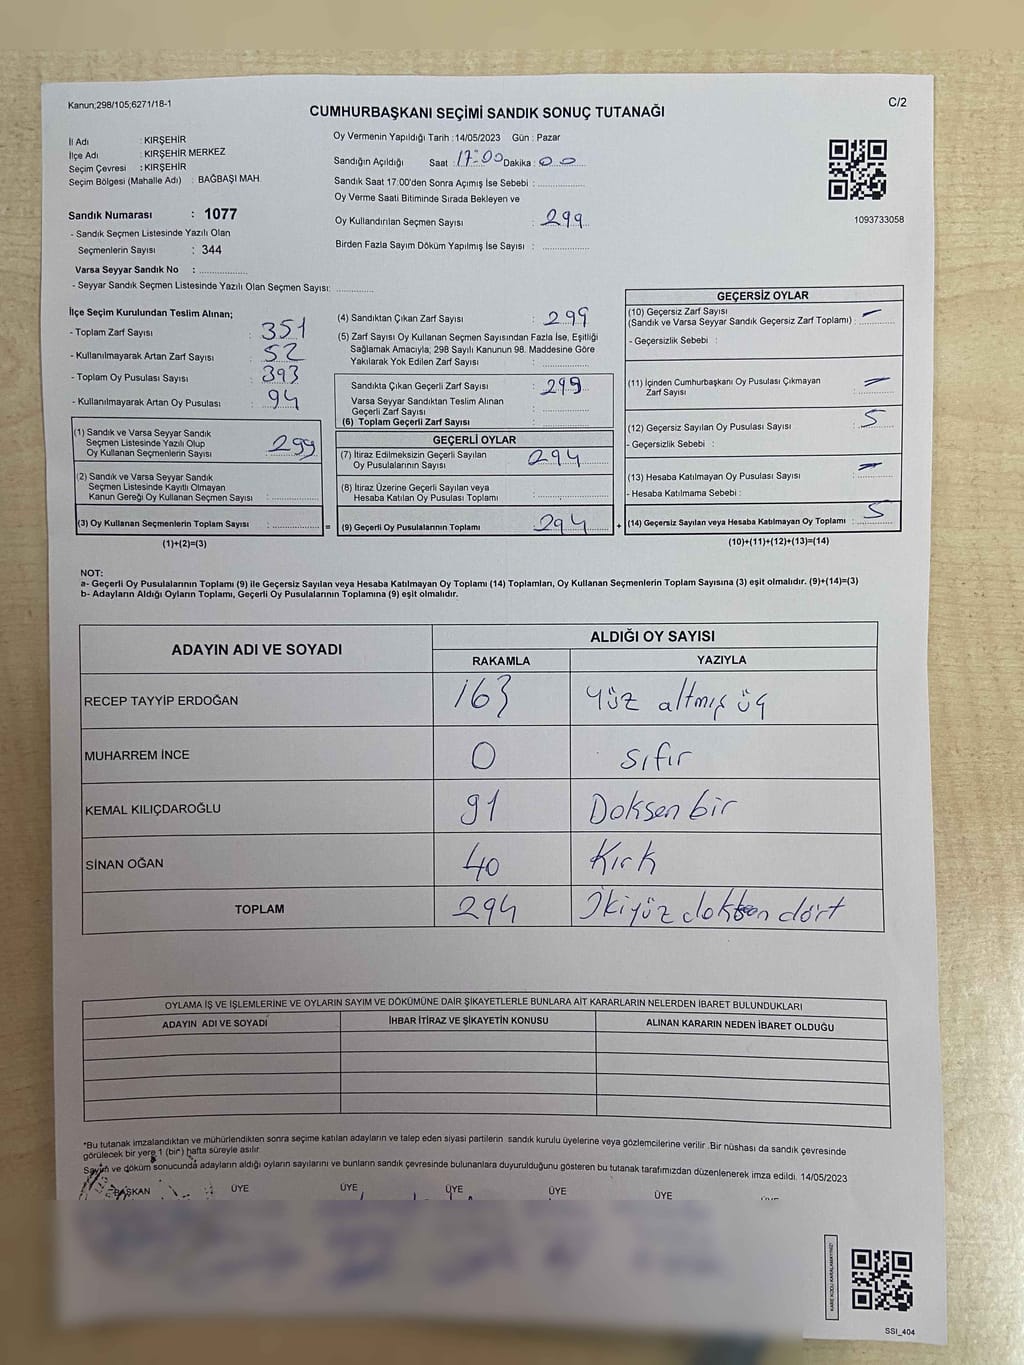 Kanun;298/105;6271/18-1
C/2
CUMHURBAŞKANI SEÇİMİ SANDIK SONUÇ TUTANAĞI
İl Adı : KIRŞEHİR
İlçe Adı : KIRŞEHİR MERKEZ
Seçim Çevresi : KIRŞEHİR
Seçim Bölgesi (Mahalle Adı) : BAĞBAŞI MAH.
Sandık Numarası : 1077
- Sandık Seçmen Listesinde Yazılı Olan
Seçmenlerin Sayısı : 344
Varsa Seyyar Sandık No :
- Seyyar Sandık Seçmen Listesinde Yazılı Olan Seçmen Sayısı:
Oy Vermenin Yapıldığı Tarih : 14/05/2023 Gün : Pazar
Sandığın Açıldığı Saat : 17:00 Dakika : 00
Sandık Saat 17.00'den Sonra Açımış İse Sebebi :
Oy Verme Saati Bitiminde Sırada Bekleyen ve
Oy Kullandırılan Seçmen Sayısı : 299
Birden Fazla Sayım Döküm Yapılmış İse Sayısı :
1093733058
İlçe Seçim Kurulundan Teslim Alınan;
- Toplam Zarf Sayısı : 351
- Kullanılmayarak Artan Zarf Sayısı : 52
- Toplam Oy Pusulası Sayısı : 393
- Kullanılmayarak Artan Oy Pusulası : 94
(1) Sandık ve Varsa Seyyar Sandık
Seçmen Listesinde Yazılı Olup
Oy Kullanan Seçmenlerin Sayısı : 299
(2) Sandık ve Varsa Seyyar Sandık
Seçmen Listesinde Kayıtlı Olmayan
Kanun Gereği Oy Kullanan Seçmen Sayısı :
(3) Oy Kullanan Seçmenlerin Toplam Sayısı : =
(1)+(2)=(3)
(4) Sandıktan Çıkan Zarf Sayısı : 299
(5) Zarf Sayısı Oy Kullanan Seçmen Sayısından Fazla İse, Eşitliği
Sağlamak Amacıyla; 298 Sayılı Kanunun 98. Maddesine Göre
Yakılarak Yok Edilen Zarf Sayısı :
Sandıkta Çıkan Geçerli Zarf Sayısı : 299
Varsa Seyyar Sandıktan Teslim Alınan
Geçerli Zarf Sayısı :
(6) Toplam Geçerli Zarf Sayısı :
GEÇERLİ OYLAR
(7) İtiraz Edilmeksizin Geçerli Sayılan
Oy Pusulalarının Sayısı : 294
(8) İtiraz Üzerine Geçerli Sayılan veya
Hesaba Katılan Oy Pusulası Toplamı :
(9) Geçerli Oy Pusulalarının Toplamı : 294 +
GEÇERSİZ OYLAR
(10) Geçersiz Zarf Sayısı
(Sandık ve Varsa Seyyar Sandık Geçersiz Zarf Toplamı) : –
- Geçersizlik Sebebi :
(11) İçinden Cumhurbaşkanı Oy Pusulası Çıkmayan
Zarf Sayısı : –
(12) Geçersiz Sayılan Oy Pusulası Sayısı : 5
- Geçersizlik Sebebi :
(13) Hesaba Katılmayan Oy Pusulası Sayısı : –
- Hesaba Katılmama Sebebi :
(14) Geçersiz Sayılan veya Hesaba Katılmayan Oy Toplamı : 5
(10)+(11)+(12)+(13)=(14)
NOT:
a- Geçerli Oy Pusulalarının Toplamı (9) ile Geçersiz Sayılan veya Hesaba Katılmayan Oy Toplamı (14) Toplamları, Oy Kullanan Seçmenlerin Toplam Sayısına (3) eşit olmalıdır. (9)+(14)=(3)
b- Adayların Aldığı Oyların Toplamı, Geçerli Oy Pusulalarının Toplamına (9) eşit olmalıdır.
ADAYIN ADI VE SOYADI ALDIĞI OY SAYISI
RAKAMLA YAZIYLA
RECEP TAYYİP ERDOĞAN 163 Yüz altmış üç
MUHARREM İNCE 0 sıfır
KEMAL KILIÇDAROĞLU 91 Doksen bir
SİNAN OĞAN 40 Kırk
TOPLAM 294 İkiyüz doksen dört
OYLAMA İŞ VE İŞLEMLERİNE VE OYLARIN SAYIM VE DÖKÜMÜNE DAİR ŞİKAYETLERLE BUNLARA AİT KARARLARIN NELERDEN İBARET BULUNDUKLARI
ADAYIN ADI VE SOYADI İHBAR İTİRAZ VE ŞİKAYETİN KONUSU ALINAN KARARIN NEDEN İBARET OLDUĞU
*Bu tutanak imzalandıktan ve mühürlendikten sonra seçime katılan adayların ve talep eden siyasi partilerin sandık kurulu üyelerine veya gözlemcilerine verilir .Bir nüshası da sandık çevresinde
görülecek bir yere 1 (bir) hafta süreyle asılır
Sayım ve döküm sonucunda adayların aldığı oyların sayılarını ve bunların sandık çevresinde bulunanlara duyurulduğunu gösteren bu tutanak tarafımızdan düzenlenerek imza edildi. 14/05/2023
BAŞKAN ÜYE ÜYE ÜYE ÜYE ÜYE
KARE KODU KARALAMAYINIZ!
SSI_404